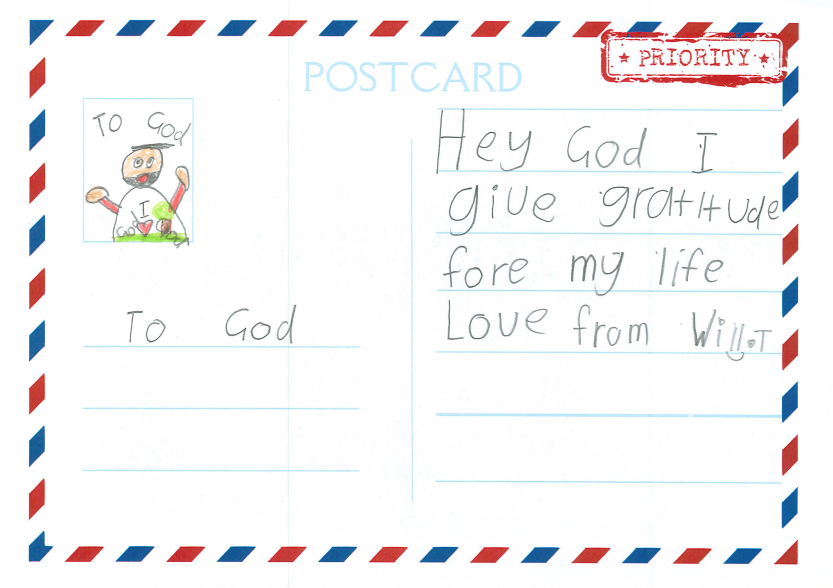 POSTCARD
PRIORITY
TO God
I
God
To God
Hey God I
give gratitude
fore my life
Love from Will.T